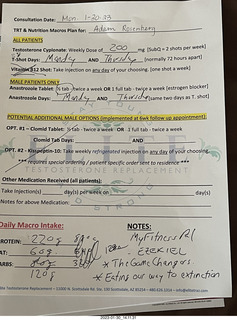 Consultation Date: Mon. 1-30-23
TRT & Nutrition Macros Plan for: Adam Rosenberg
ALL PATIENTS
Testosterone Cypionate: Weekly Dose of 200 mg (SubQ = 2 shots per week)
T-Shot Days: Mondy AND Thursdy (normally 72 hours apart)
Vitamin B12 Shot: Take injection on any day of your choosing. (one shot a week)
MALE PATIENTS ONLY
Anastrozole Tablet: ½ tab - twice a week OR 1 full tab - twice a week [estrogen blocker]
Anastrozole Days: Mondy AND Thursdy (same two days as T. shot)
POTENTIAL ADDITIONAL MALE OPTIONS (implemented at 6wk follow up appointment):
OPT. #1 = Clomid Tablet: ½ tab - twice a week OR 1 full tab - twice a week
Clomid Tab Days: AND
OPT. #2 - Kisspeptin-10: Take weekly refrigerated injection on any day of your choosing
*** requires special ordering / patient specific order sent to residence ***
TESTOSTERONE REPLACEMENT
Other Medication Received (all patients):
Take Injection(s) day(s) per week on day(s)
Notes for above Medication:
Daily Macro Intake:
NOTES:
PROTEIN: 220g
MyFitnessPal
FAT: 60g
EZEKIEL
CARBS:
* The Game Changers
120g
* Eating our way to extinction